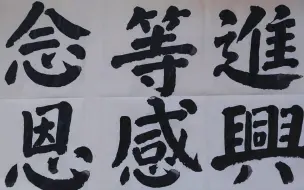 進興
等感
念恩